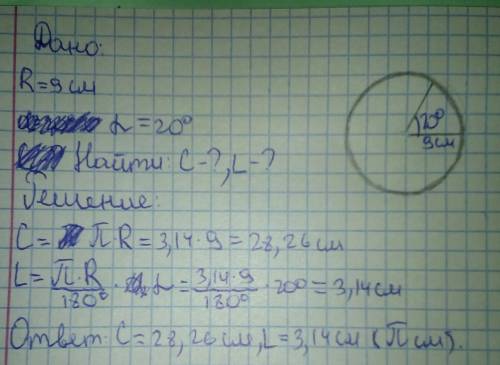 Дано:
R=9см
α=20°
Найти: С-?, L-?
Решение:
С= П·R=3,14·9=28,26см
L= П·R/180° · α = 3,14·9/180° · 20° = 3,14см
Ответ: С=28,26см, L=3,14см (П см).
20°
9см